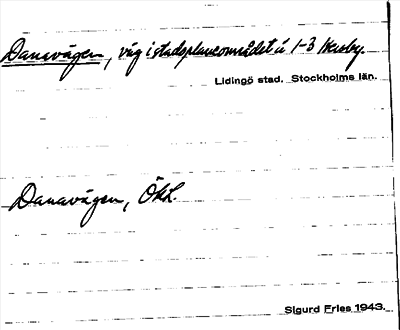 Danavägen, väg i stadsplaneområdet å 1-3 Hersby.
Lidingö stad. Stockholms län.
Danavägen, ÖkL.
Sigurd Fries 1943.